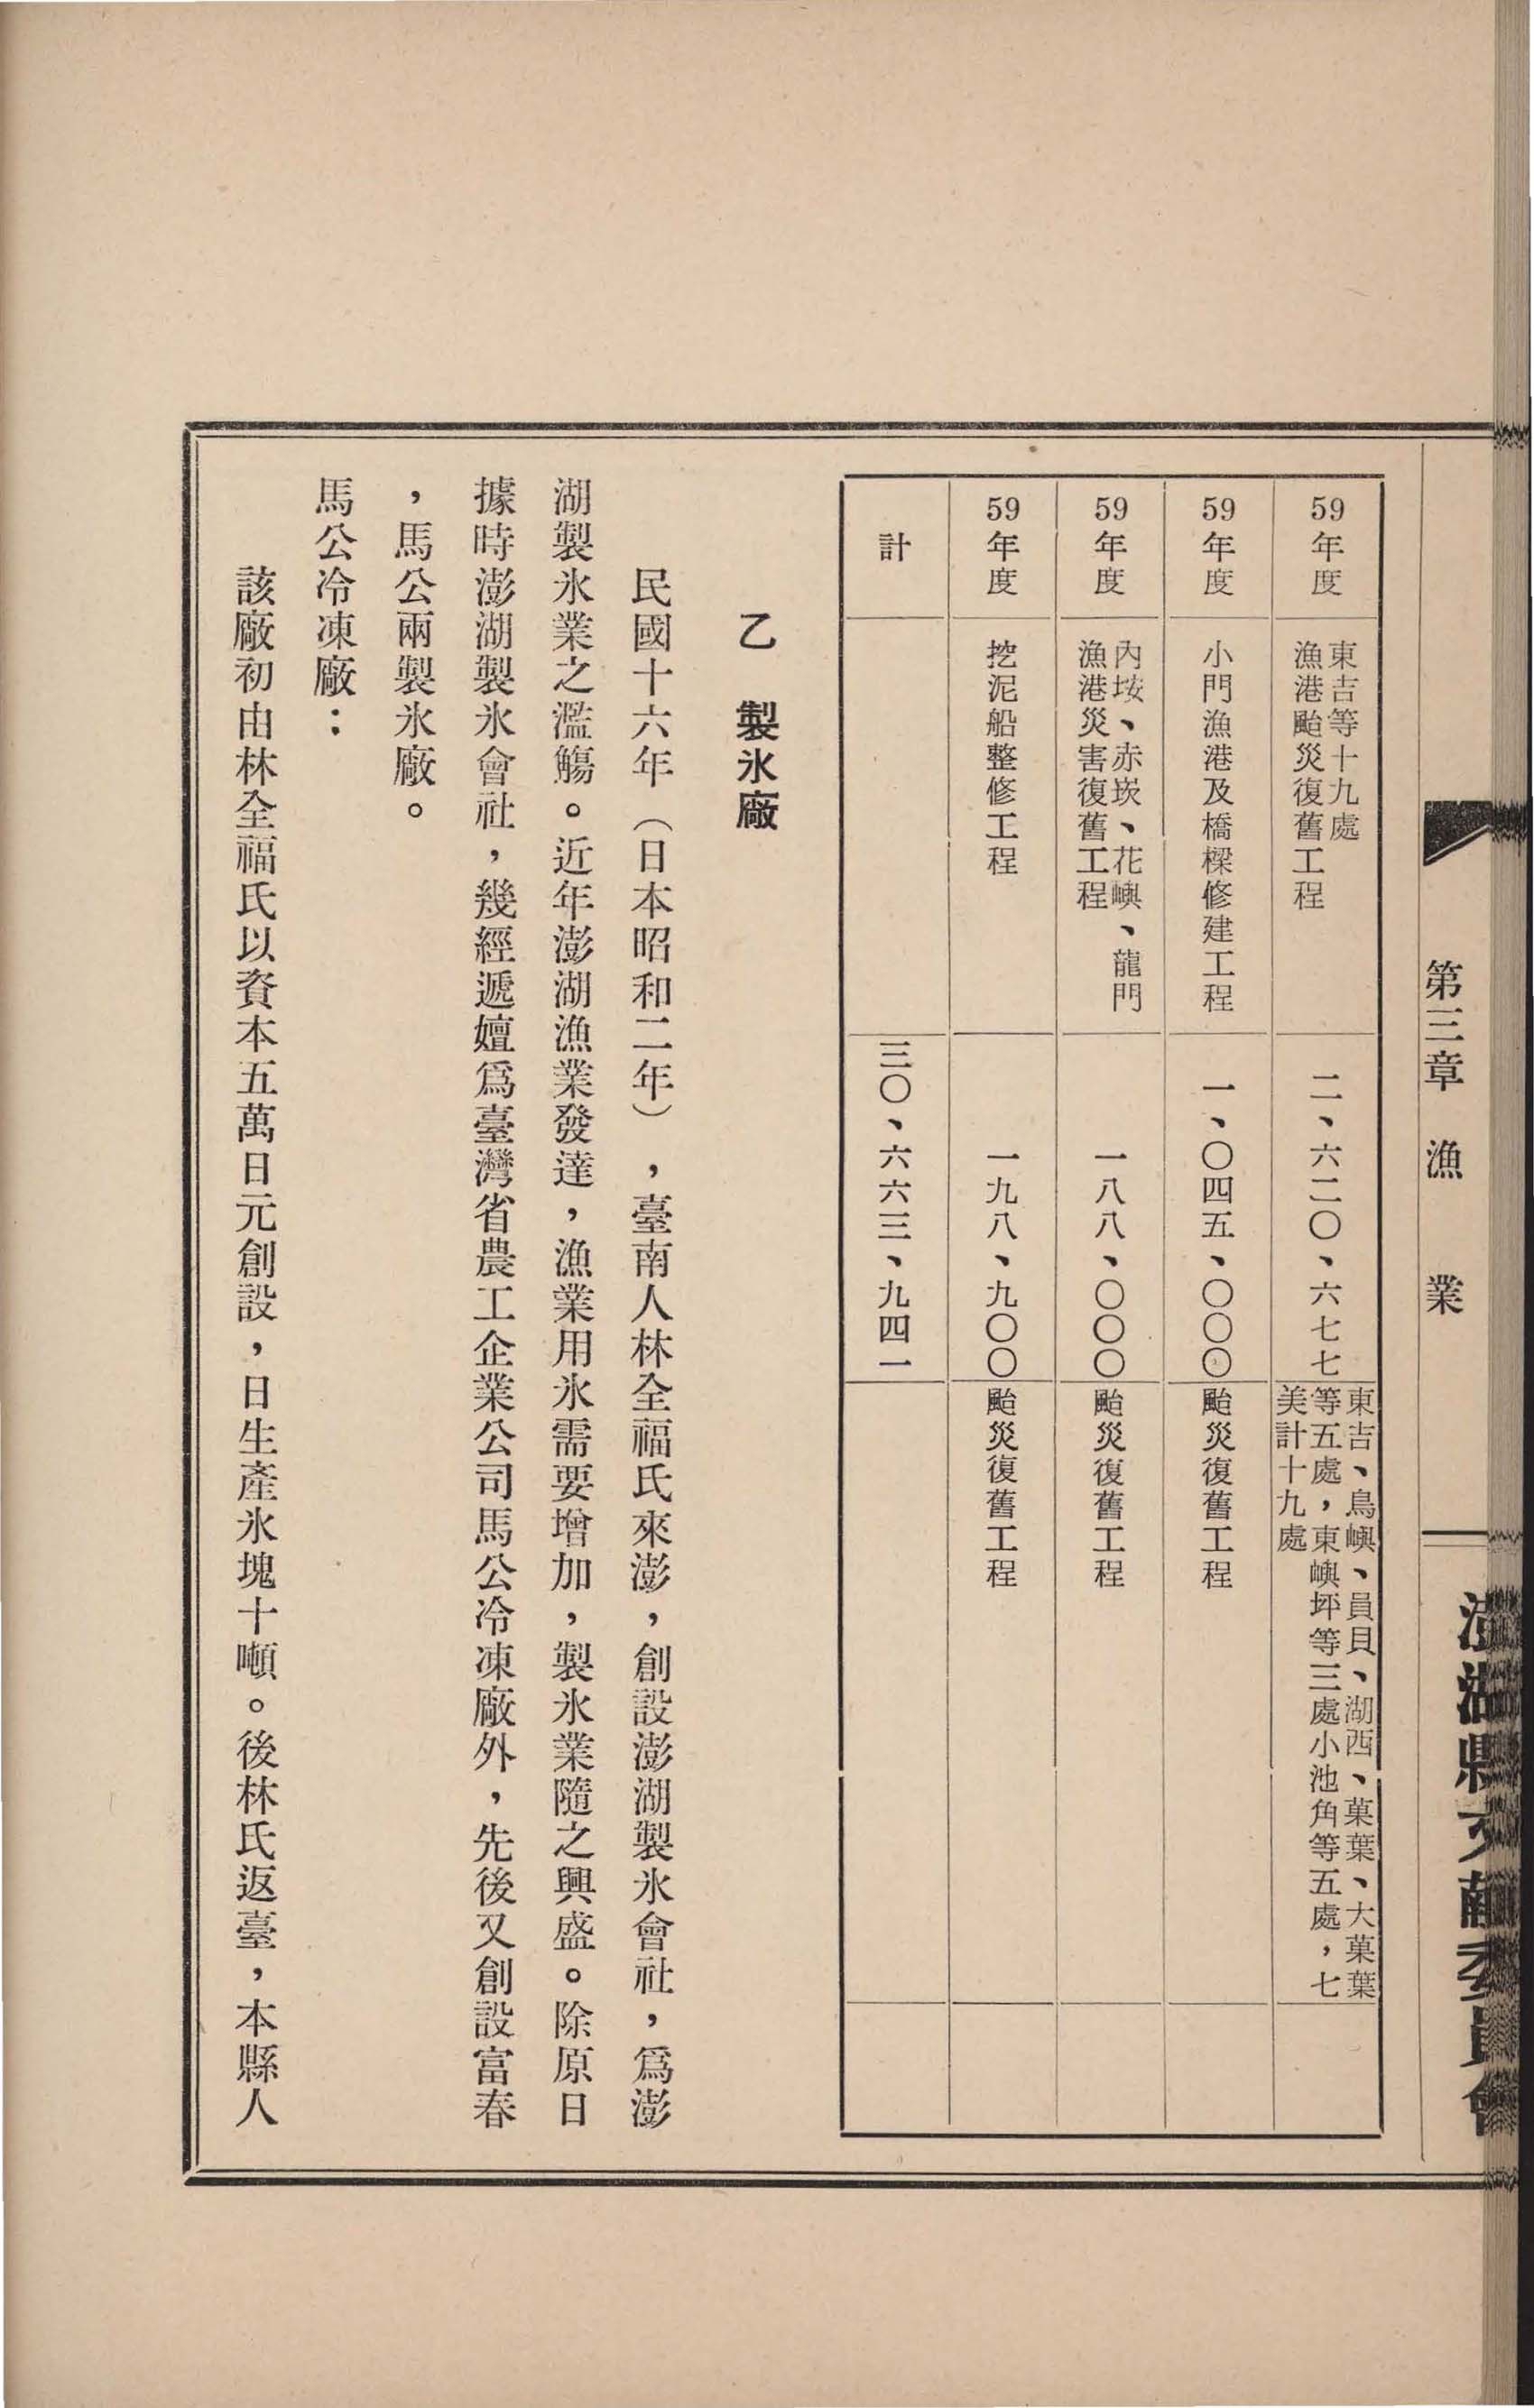 第三章　漁　業
澎湖縣文獻委員會
59年度
東吉等十九處
漁港颱災復舊工程
二、六二〇、六七七
東吉、鳥嶼、員貝、湖西、菓葉、大菓葉
等五處，東嶼坪等三處小池角等五處，七
美計十九處
59年度
小門漁港及橋樑修建工程
一、〇四五、〇〇〇
颱災復舊工程
59年度
內垵、赤崁、花嶼、龍門
漁港災害復舊工程
一八八、〇〇〇
颱災復舊工程
59年度
挖泥船整修工程
一九八、九〇〇
颱災復舊工程
計
三〇、六六三、九四一
乙　製氷廠
民國十六年（日本昭和二年），臺南人林全福氏來澎，創設澎湖製氷會社，爲澎
湖製氷業之濫觴。近年澎湖漁業發達，漁業用氷需要增加，製氷業隨之興盛。除原日
據時澎湖製氷會社，幾經遞嬗爲臺灣省農工企業公司馬公冷凍廠外，先後又創設富春
，馬公兩製氷廠。
馬公冷凍廠：
該廠初由林全福氏以資本五萬日元創設，日生產氷塊十噸。後林氏返臺，本縣人